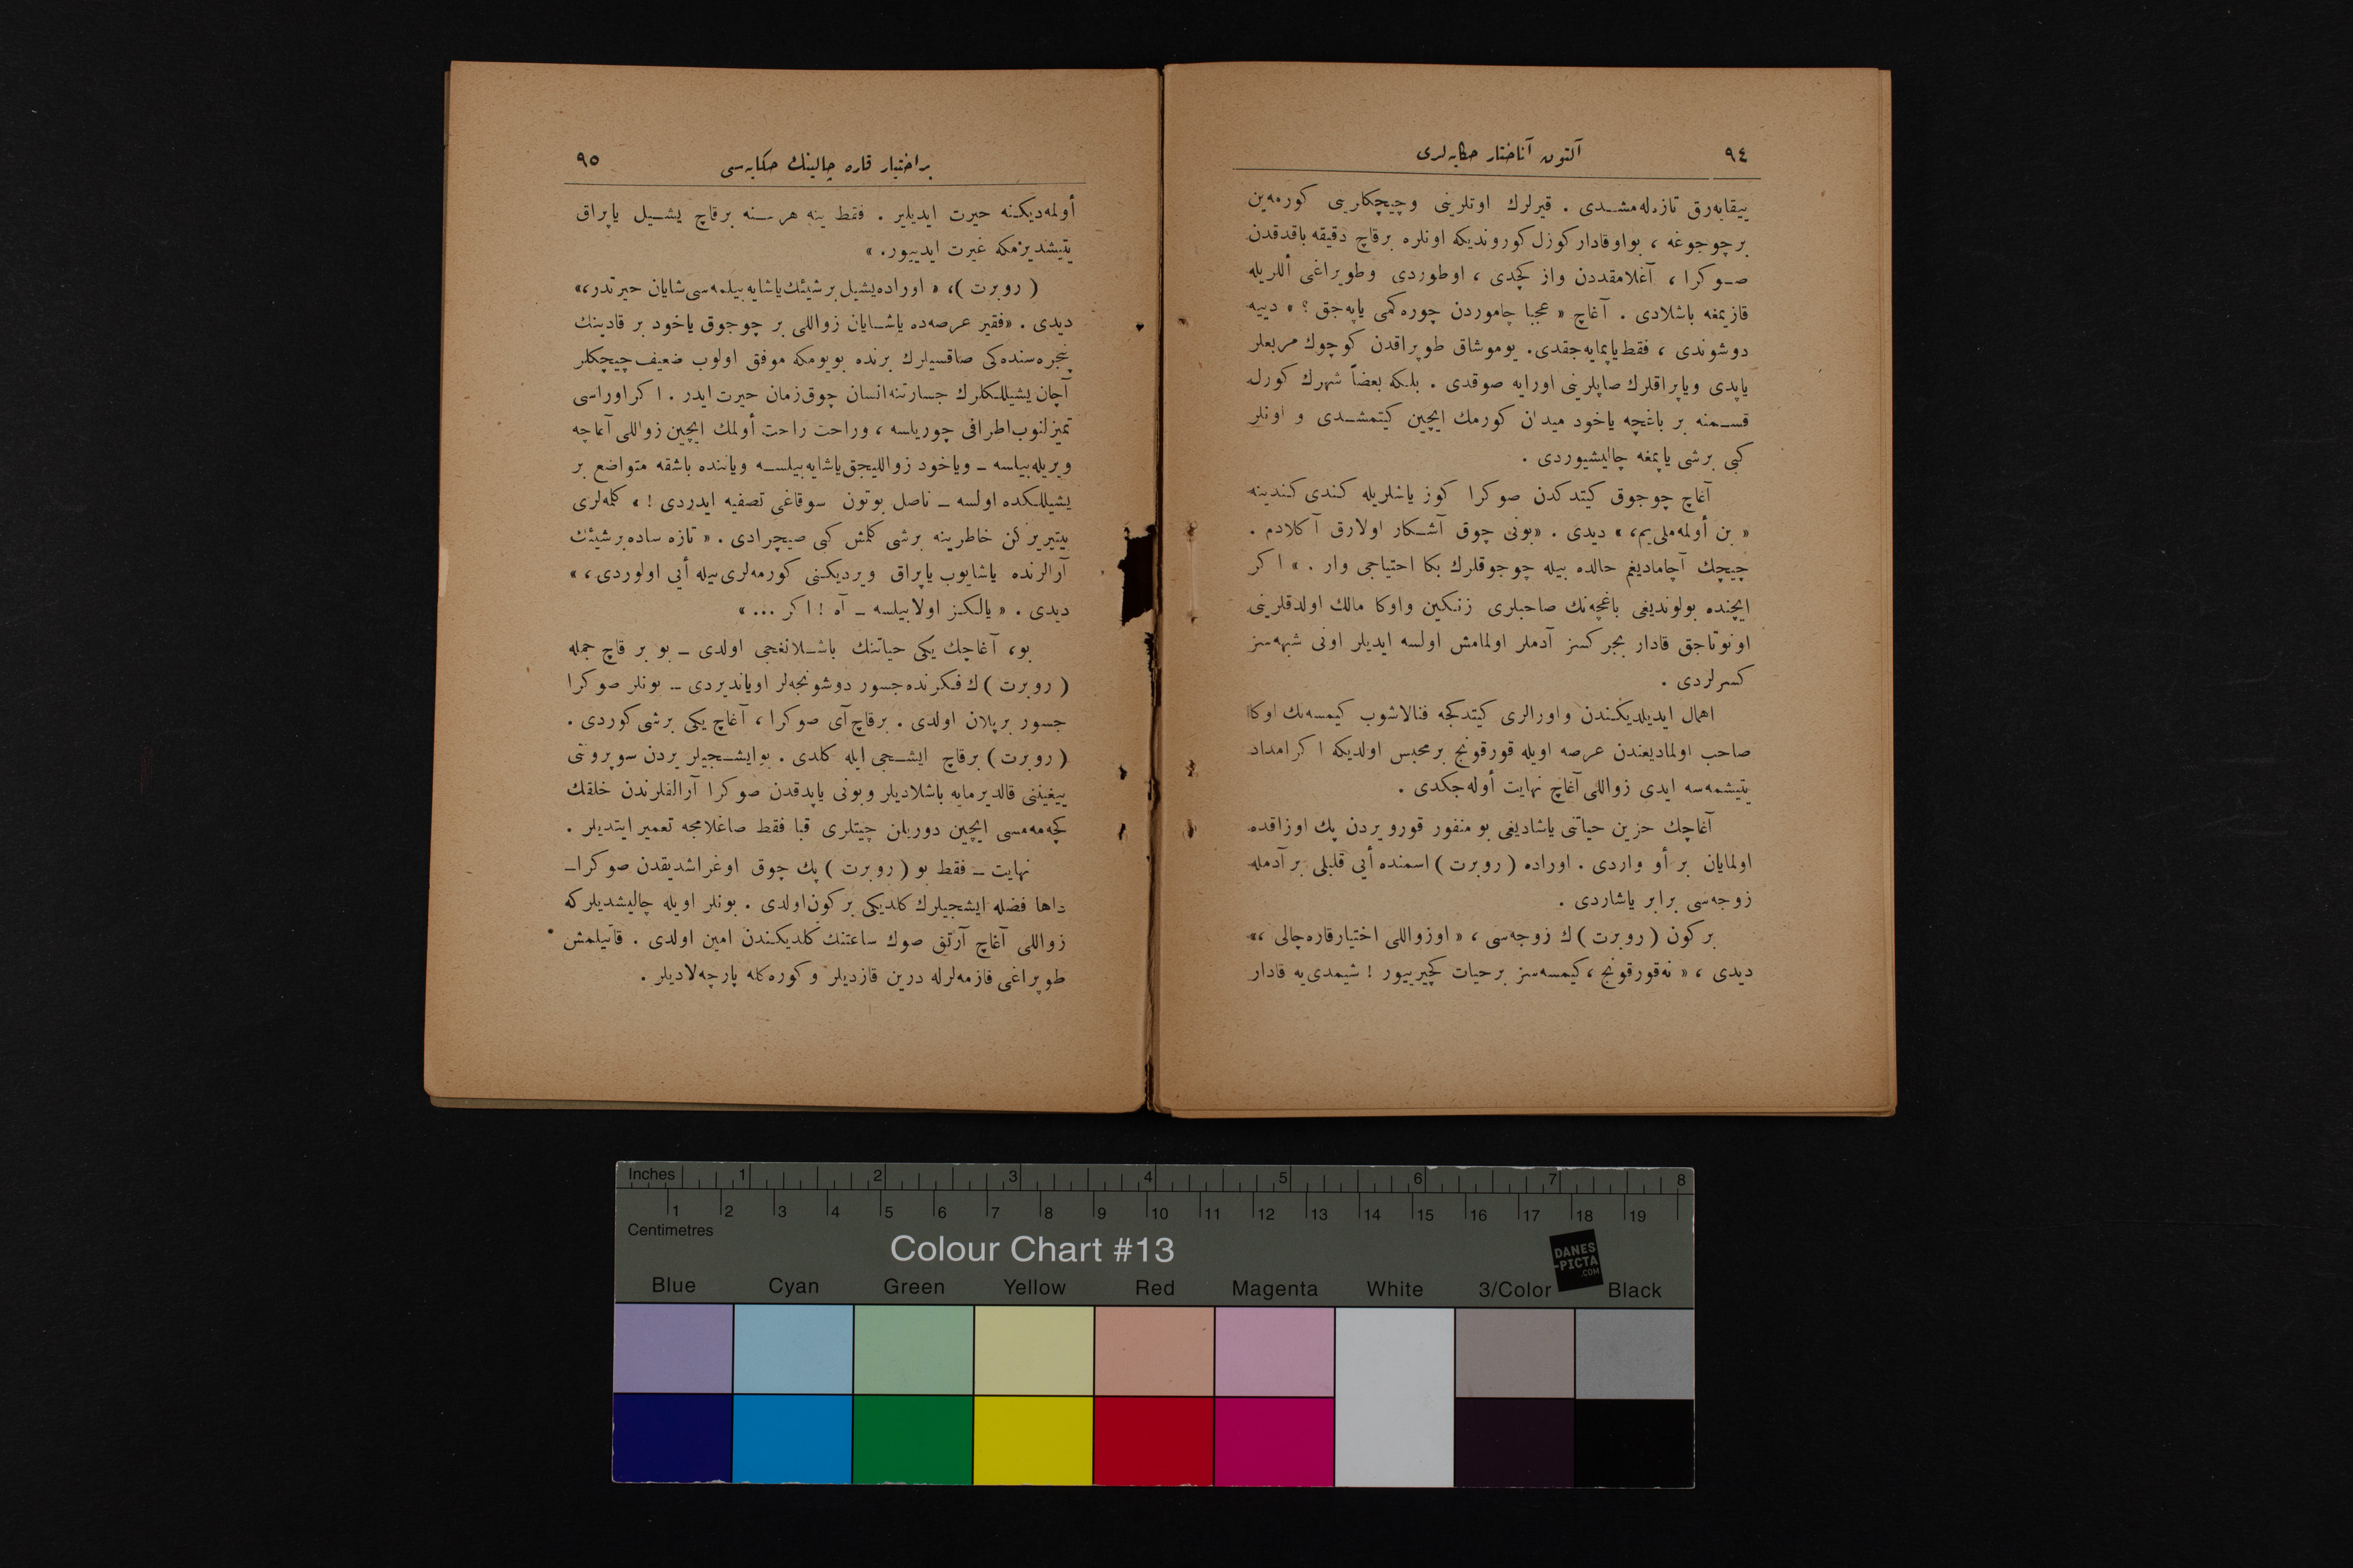 ٩٤
آلتون آناختار حكايه‌لرى
ييقايه‌رق تازه‌له‌مشدى . قيرلرك اوتلرينى وچيچكلرينى كورمه‌ين
برچوجوغه ، بواوقادار كوزل كورونديكه اونلره برقاچ دقيقه باقدقدن
صوكرا ، آغلامقدن واز كچدى ، اوطوردى وطوپراغى أللريله
قازيمغه باشلادى . آغاچ « عجبا چاموردن چوره‌كمى ياپه‌جق ؟ » دييه
دوشوندى ، فقط ياپمايه‌جقدى. يوموشاق طوپراقدن كوچوك مربعلر
ياپدى وياپراقلرك صاپلرينى اورايه صوقدى . بلكه بعضاً شهرك كورل
قسمنه بر باغچه ياخود ميدان كورمك ايچين كيتمشدى و اونلر
كبى برشى ياپمغه چاليشيوردى .
آغاچ چوجوق كيتدكدن صوكرا كوز ياشلريله كندى كندينه
« بن أولمه‌ملى‌يم، » ديدى . «بونى چوق آشكار اولارق آ كلادم .
چيچك آچاماديغم حالده بيله چوجوقلرك بكا احتياجى وار . » ا كر
ايچنده بولونديغى باغچه‌نك صاحبلرى زنكين واوكا مالك اولدقلرينى
اونوتاجق قادار بجركسز آدملر اولمامش اولسه ايديلر اونى شبهه‌سز
كسرلردى .
اهمال ايديلديكندن واورالرى كيتدكجه فنالاشوب كيمسه‌نك اوكا
صاحب اولماديغندن عرصه اويله قورقونج برمحبس اولديكه ا كر امداد
يتيشمه‌سه ايدى زواللى آغاچ نهايت أوله‌جكدى .
آغاچك حزين حياتنى ياشاديغى بو منفور قورو يردن پك اوزاقده
اولمايان بر أو واردى . اوراده ( روبرت ) اسمنده أيى قلبلى بر آدمله
زوجه‌سى برابر ياشاردى .
بركون ( روبرت ) ك زوجه‌سى ، « اوزواللى اختيار قاره چالى ،»
ديدى ، « نه‌قورقونج ، كيمسه‌سز برحيات كچيرييور ! شيمدى‌يه قادار
براختيار قاره چالينك حكايه‌سى
٩٥
أولمه‌ديكنه حيرت ايديلير . فقط ينه هرسنه برقاچ يشيل ياپراق
يتيشديرمكه غيرت ايدييور. »
( روبرت )، « اوراده‌يشيل برشيئك‌ياشايه‌بيلمه‌سى شايان حيرتدر،»
ديدى . «فقير عرصه‌ده ياشايان زواللى بر چوجوق ياخود بر قادينك
پنجره‌سنده‌كى صاقسيلرك برنده بويومكه موفق اولوب ضعيف چيچكلر
آچان يشيللكلرك جسارتنه انسان چوق‌زمان حيرت ايدر . ا كر اوراسى
تميزلنوب اطرافى چوريلسه ، وراحت راحت أولمك ايچين زواللى آغاجه
ويريله‌بيلسه ــ وياخود زواللیجق ياشايه‌بيلسه وياننده باشقه متواضع بر
يشيللكده اولسه ــ ناصل بوتون سوقاغى تصفيه ايدردى ! » كلمه‌لرى
بيتيريركن خاطرينه برشى كلمش كبى صيچرادى . « تازه ساده برشيئك
آرالرنده ياشايوب ياپراق ويرديكنى كورمه‌لرى بيله أيى اولوردى ، »
ديدى . « يالكز اولابيلسه ــ آه ! ا كر ... »
بو، آغاچك يكى حياتنك باشلانغجى اولدى ــ بو بر قاچ جمله
( روبرت ) ك فكرنده جسور دوشونجه‌لر اوياندیردى ــ بونلر صوكرا
جسور برپلان اولدى . برقاچ آى صوكرا ، آغاچ يكى برشى كوردى .
( روبرت ) برقاچ ايشجى ايله كلدى . بوايشجيلر يردن سوپرونتى
ييغيننى قالديرمايه باشلاديلر وبونى ياپدقدن صوكرا آرالقلرندن خلقك
كچه‌مه‌مسى ايچين دوريلن چيتلرى قبا فقط صاغلامجه تعمير ايتديلر .
نهايت ــ فقط بو ( روبرت ) پك چوق اوغراشديقدن صوكرا ــ
داها فضله ايشجيلرك كلديكى بركون اولدى . بونلر اويله چاليشديلركه
زواللى آغاچ آرتق صوك ساعتنك كلديكندن امين اولدى . قاتيلمش
طوپراغى قازمه‌لرله درين قازديلر و كوره‌كله پارچه‌لاديلر .
Inches 1 2 3 4 5 6 7 8
1 2 3 4 5 6 7 8 9 10 11 12 13 14 15 16 17 18 19
Centimetres
Colour Chart #13
DANES
-PICTA
.COM
Blue Cyan Green Yellow Red Magenta White 3/Color Black